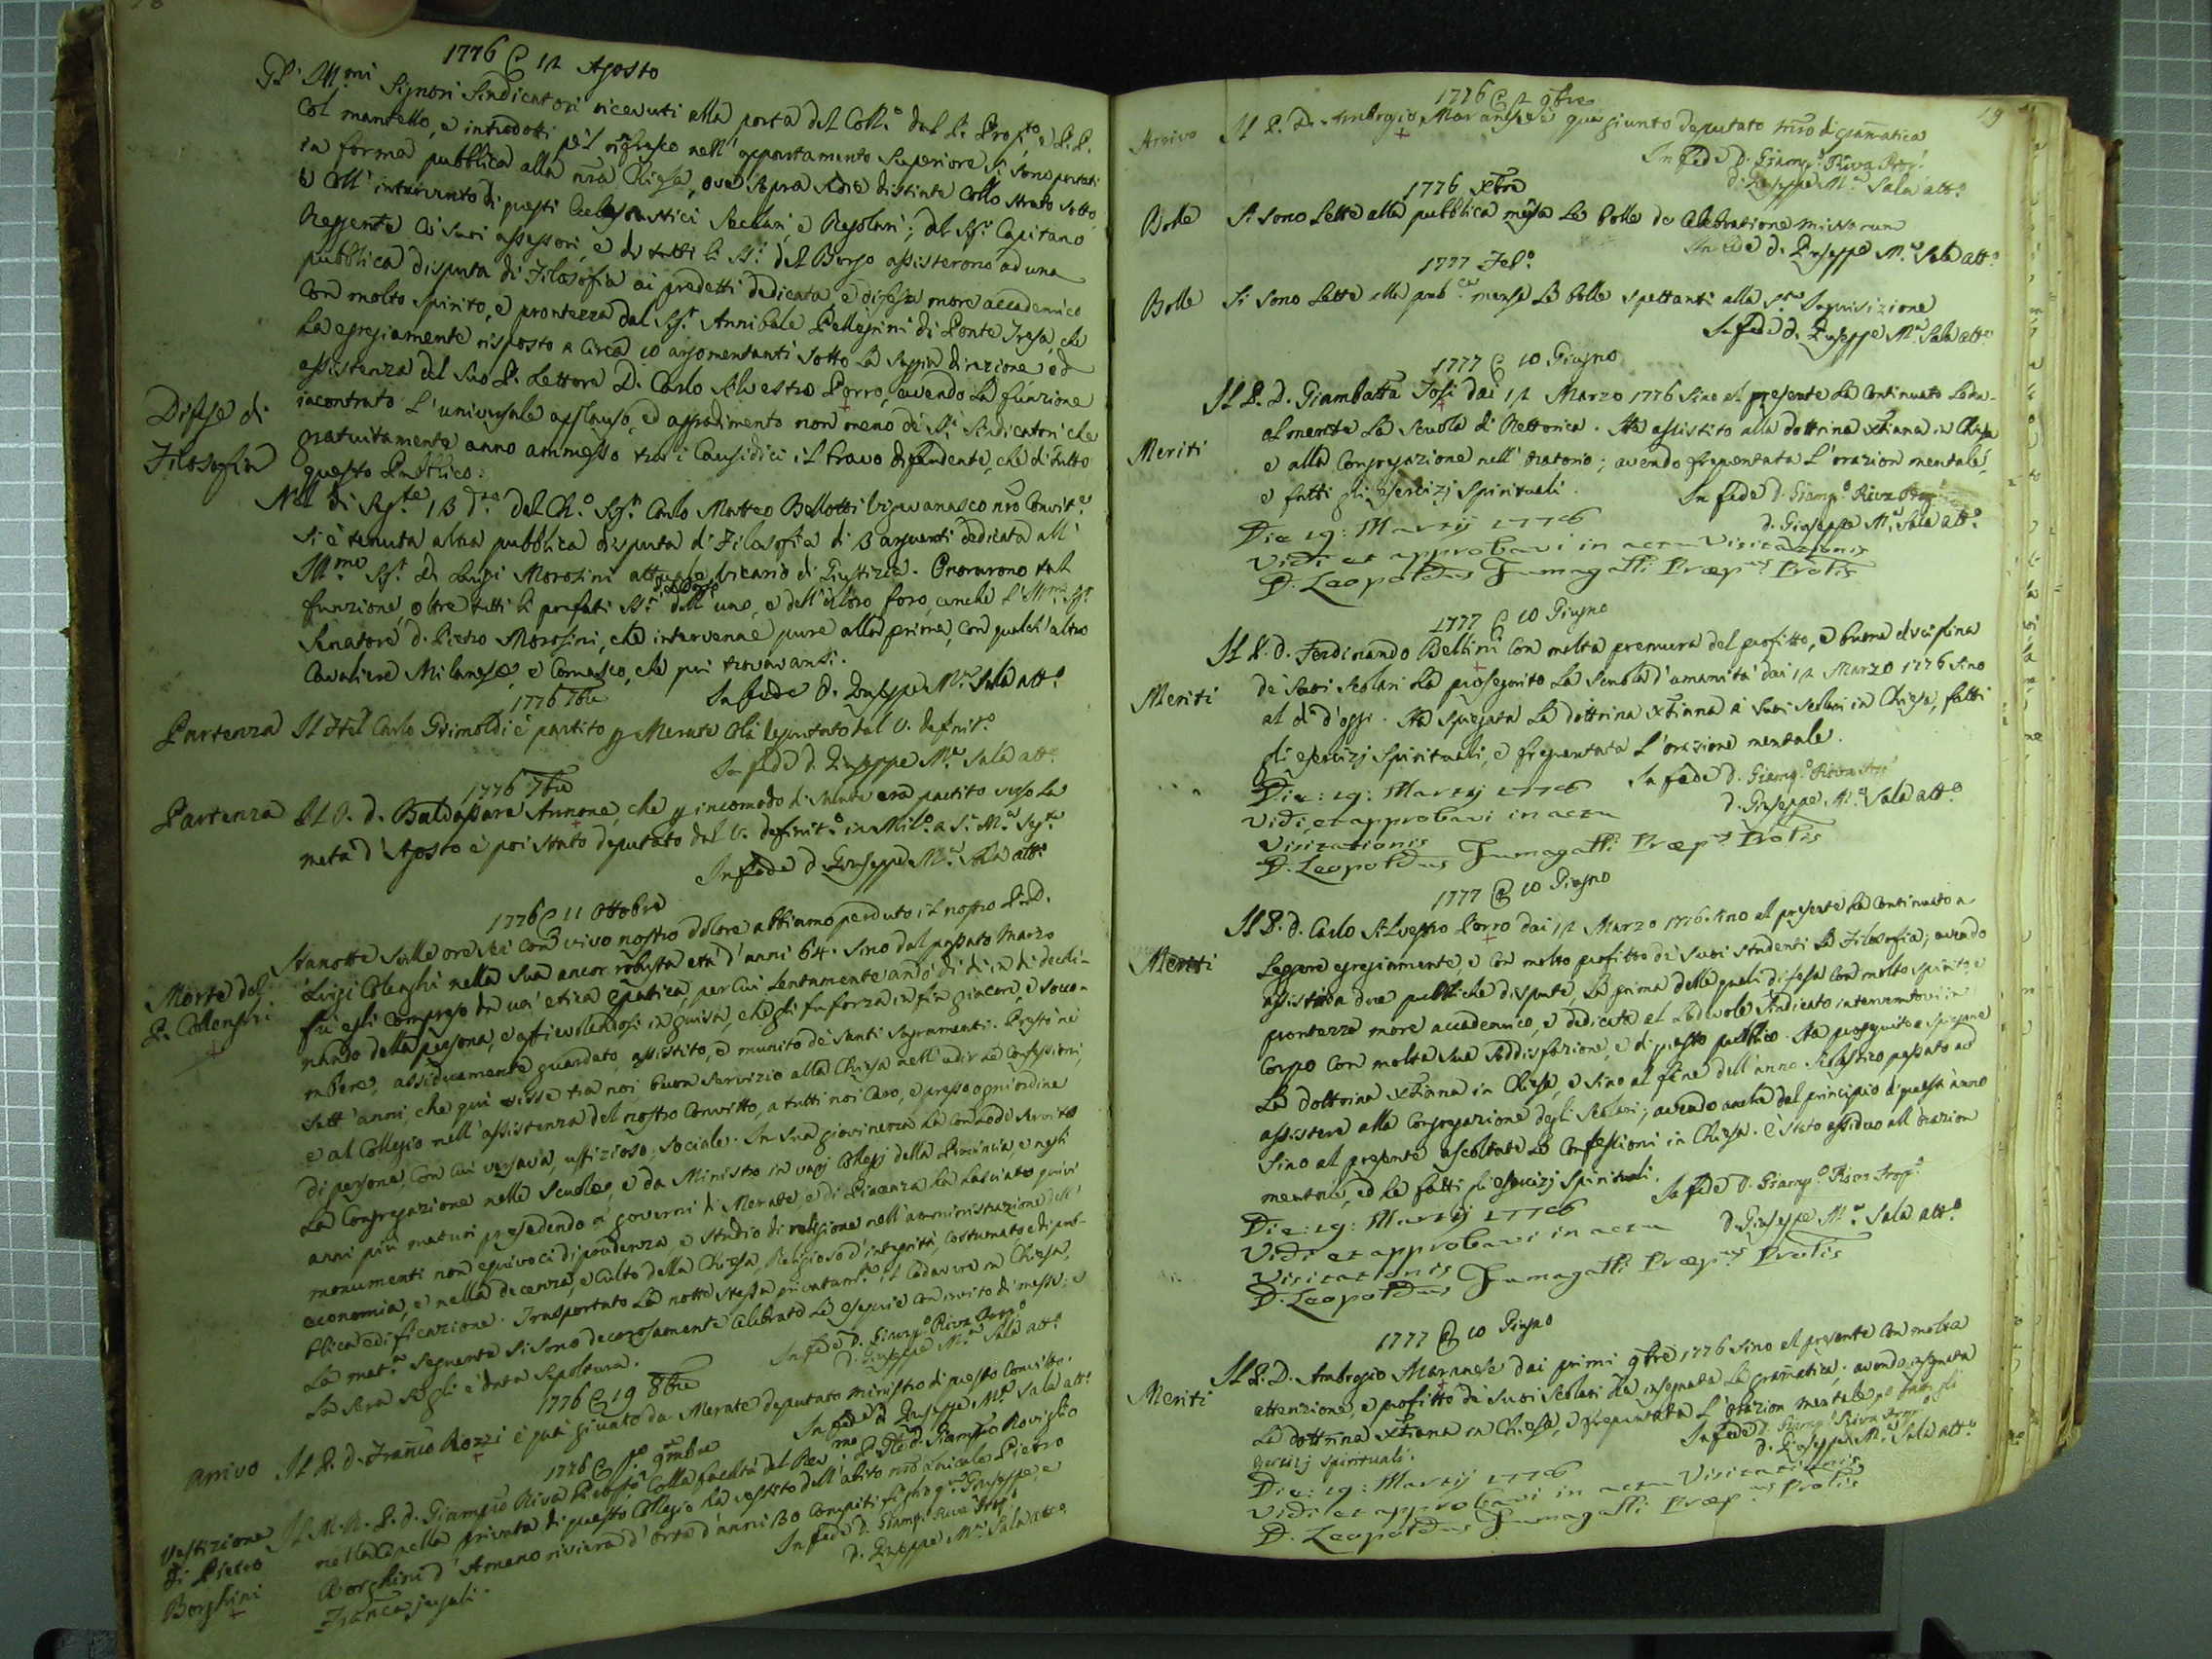 18
1776 @ 12 Agosto
Gl' Ill.mi Signori Sindicatori ricevuti alla porta del Coll.o dal P. Prop.to e P.P.
col mantello, e introdotti pel rinfresco nell' appartamento superiore si sono portati
in forma pubblica alla nra Chiesa, ove sopra sedie distinte collo strato sotto
e coll' intervento di questi Eclesiastici Secolari, e Regolari; del Sig.r Capitano
Reggente co' suoi assessori, e di tutti li SS.ri del Borgo assisterono ad una
pubblica disputa di Filosofia ai predetti dedicata, e difesa more accademico
con molto spirito, e prontezza dal Sig.r Annibale Pellegrini di Ponte Tresa, che
ha egregiamente risposto a circa 10 argomentanti sotto la saggia direzione ed
assistenza del suo P. Lettore D. Carlo Silvestro Porro, avendo la funzione
incontrato l' universale applauso, ed aggradimento non meno de' SS.ri Sindicatori che
gratuitamente anno ammesso tra i Causidici il bravo difendente, che di tutto
questo Pubblico.
Difese di
Filosofia
Nel di seg.te 13 d.to dal Ch.o Sig.r Carlo Matteo Bellotti Vigevanasco nro Convit.e
si è tenuta altra pubblica disputa di Filosofia di 3 arguenti dedicata all'
Ill.mo Sig.r D. Luigi Morosini attuale Vicario di Giustizia. Onorarono tal
funzione, oltre tutti li prefati SS.ri del Borgo dell' uno, e dell' altro foro, anche l' Ill.mo Sig.r
Senatore D. Pietro Morosini, che intervenne pure alla prima, con qualch' altro
Cavaliere Milanese, e Comasco, che qui trovavansi.
In fede D. Giuseppe M.a Sala att.o
1776 7bre
Partenza Il Frel Carlo Grimoldi è partito p Merate colà deputato dal V. definit.o
In fede D. Giuseppe M.a Sala att.o
1776 7bre
Partenza Il P. D. Baldassare Annone, che p incomodo di salute era partito verso la
metà d' Agosto è poi stato deputato dal V. definit.o in Mil.o a S. M.a Seg.ta
In fede D. Giuseppe M.a Sala att.o
1776 @ 11 Ottobre
Morte del
P. Collenghi
Stanotte sulle ore sei con vivo nostro dolore abbiamo perduto il nostro P. D.
Luigi Colenghi nella sua ancor robusta età d' anni 64. Sino dal passato Marzo
fu egli compreso da un' etica epatica, per cui lentamente andò di dì in dì decli-
nando della persona, e affievolendosi in guisa, che gli fu forza in fin giacere, e socco-
mbere, assiduamente guardato, assistito, e munito de' Santi Sagramenti. Prestò ne'
sett' anni, che qui visse tra noi buon servizio alla Chiesa nell' udir le Confessioni,
e al Collegio nell' assistenza del nostro Convitto, a tutti noi caro, e presso ogni ordine
di persone, con cui versava, uffizioso, sociale. In sua giovinezza ha con lode servito
la Congregazione nelle scuole, e da Ministro in varj Collegj della Provincia, e negli
anni più maturi presedendo a' governi di Merate, e di Piacenza ha lasciato quivi
monumenti non equivoci di prudenza, e studio di religione nell' amministrazione dell'
economia, e nella decenza, e culto della Chiesa, Religioso d' integrità, costumato e di pub-
blica edificazione. Trasportato la notte stessa privatam.te il Cadavere in Chiesa,
la mat.a seguente si sono decorosamente celebrate le esequie con invito di messe; e
la sera se gli è data sepoltura.
In fede D. Giamp.o Riva Prop.o
D. Giuseppe M.a Sala att.o
1776 @ 19 8bre
arrivo Il P. D. Franco Rozzi è qua giunto da Merate deputato ministro di questo Convitto.
In fede D. Giuseppe M.a Sala att.o
1776 @ p.o 9mbre
Vestizione
di Pietro
Borghini
Il M. R. P. D. Giampro Riva Prevosto colla facoltà del Rev.mo P. Gle D. Giampro Roviglio
nella Capella privata di questo Collegio ha vestito dell' abito nro clericale Pietro
Borghini d' Ameno riviera d' Orta d' anni 30 compiti figlio q.m Giuseppe e
Franca jugali.
In fede D. Giamp.o Riva Prop.o
D. Giuseppe M.a Sala att.o
19
1776 @ 12 9bre
Arrivo Il P. D. Ambrogio Maranese è qua giunto deputato mro di gramatica
In fede D. Giamp.o Riva Prop.o
D. Giuseppe M.a Sala att.o
1776 Xbre
Bolle Si sono lette alla pubblica mensa le bolle de Celebratione missarum
In fede D. Giuseppe M.a Sala att.o
1777 Feb.o
Bolle Si sono lette alla pub.ca mensa le bolle spettanti alla S.ta Inquisizione
In fede D. Giuseppe M.a Sala att.o
1777 @ 10 Giugno
Meriti
Il P. D. Giambatta Fosi dai 12 Marzo 1776 sino al presente ha continuato loda-
olmente la scuola di Rettorica. Ha assistito alla dottrina xtiana in Chiesa
e alla Congregazione nell' oratorio; avendo frequentata l' orazion mentale,
e fatti gli esercizj spirituali.
In fede D. Giamp.o Riva Prop.o
D. Giuseppe M.a Sala att.o
Die 19: Martij 1776
Vidi et approbavi in actu Visitationis
D. Leopoldus Fumagalli Præp.us Provlis
1777 @ 10 Giugno
Meriti
Il P. D. Ferdinando Bellini con molta premura del profitto, e buona disciplina
de' suoi scolari ha proseguito la scuola d' umanità dai 12 Marzo 1776 sino
al dì d' oggi. Ha spiegata la dottrina xtiana a' suoi scolari in Chiesa, fatti
gli esercizj spirituali, e frequentata l' orazione mentale.
In fede D. Giamp.o Riva Prop.o
D. Giuseppe M.a Sala att.o
Die: 19: Martij 1776
Vidi, et approbavi in actu
Visitationis
D. Leopoldus Fumagalli Præp.us Provlis
1777 @ 10 Giugno
Meriti
Il P. D. Carlo Silvestro Porro dai 12 Marzo 1776. sino al presente ha continuato a
leggere egregiamente, e con molto profitto de' suoi studenti la Filosofia; avendo
assistito a due pubbliche dispute, la prima delle quali difesa con molto spirito, e
prontezza more accademico, e dedicata al Lodevole Sindicato intervenutovi in
corpo con molta sua soddisfazione, e di questo pubblico. Ha proseguito a spiegare
la dottrina xtiana in Chiesa, e sino al fine dell' anno scolastico passato ad
assistere alla Congregazione degli scolari; avendo anche dal principio di quest' anno
sino al presente ascoltate le Confessioni in Chiesa. È stato assiduo all' orazion
mentale, ed ha fatti gli esercizj spirituali.
In fede D. Giamp.o Riva Prop.o
D. Giuseppe M.a Sala att.o
Die: 19: Martij 1776
Vidi et approbavi in actu
Visitationis
D. Leopoldus Fumagalli Præp.us Provlis
1777 @ 10 Giugno
Meriti
Il P. D. Ambrogio Maranese dai primi 9bre 1776 sino al presente con molta
attenzione, e profitto de' suoi scolari ha insegnata la gramatica; avendo insegnata
la dottrina xtiana in Chiesa, e frequentata l' orazion mentale, e fatti gli
esercizj spirituali.
In fede D. Giamp.o Riva Prop.o
D. Giuseppe M.a Sala att.o
Die: 19: Martij 1776
Vidi et approbavi in actu Visitationis
D. Leopoldus Fumagalli Præp.us Provlis